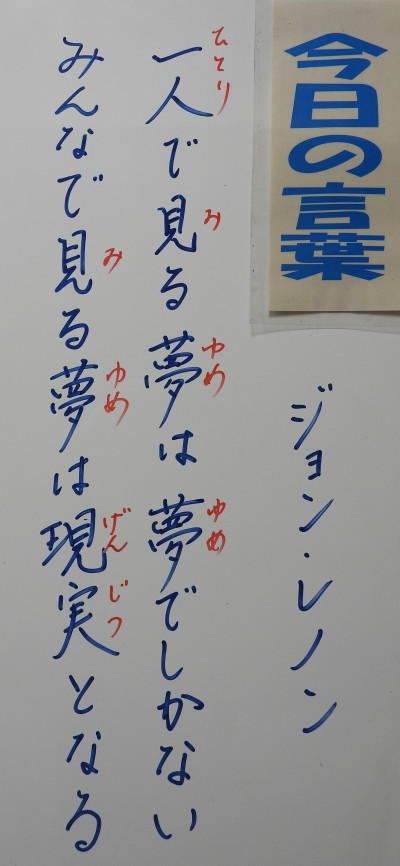 今日の言葉
ジョン・レノン
一人で見る夢は夢でしかない
ひとり み ゆめ ゆめ
みんなで見る夢は現実となる
み ゆめ げんじつ